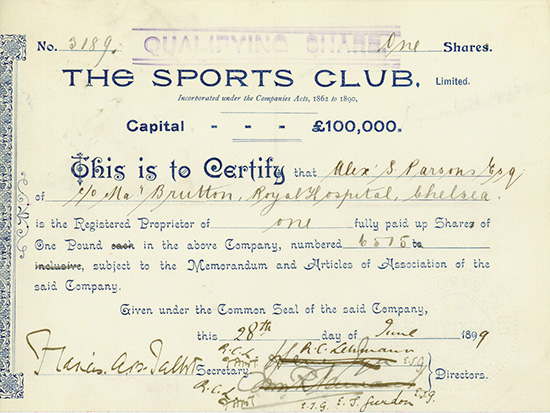 No. 3189. QUALIFYING SHARE. One Shares.
THE SPORTS CLUB, Limited.
Incorporated under the Companies Acts, 1862 to 1890,
Capital - - - £100,000.
This is to Certify that Alex S Parsons Esq
of c/o Maj Brutton, Royal Hospital, Chelsea.
is the Registered Proprietor of one fully paid up Shares of
One Pound each in the above Company, numbered 6515 to
inclusive, subject to the Memorandum and Articles of Association of the
said Company.
Given under the Common Seal of the said Company,
this 28th day of June 1899
R. C. L. R. C. Lehmann
Secretary E.S.G.
Directors.
R. C. L.
E.S.G. E. S. Gurdon E.S.G.